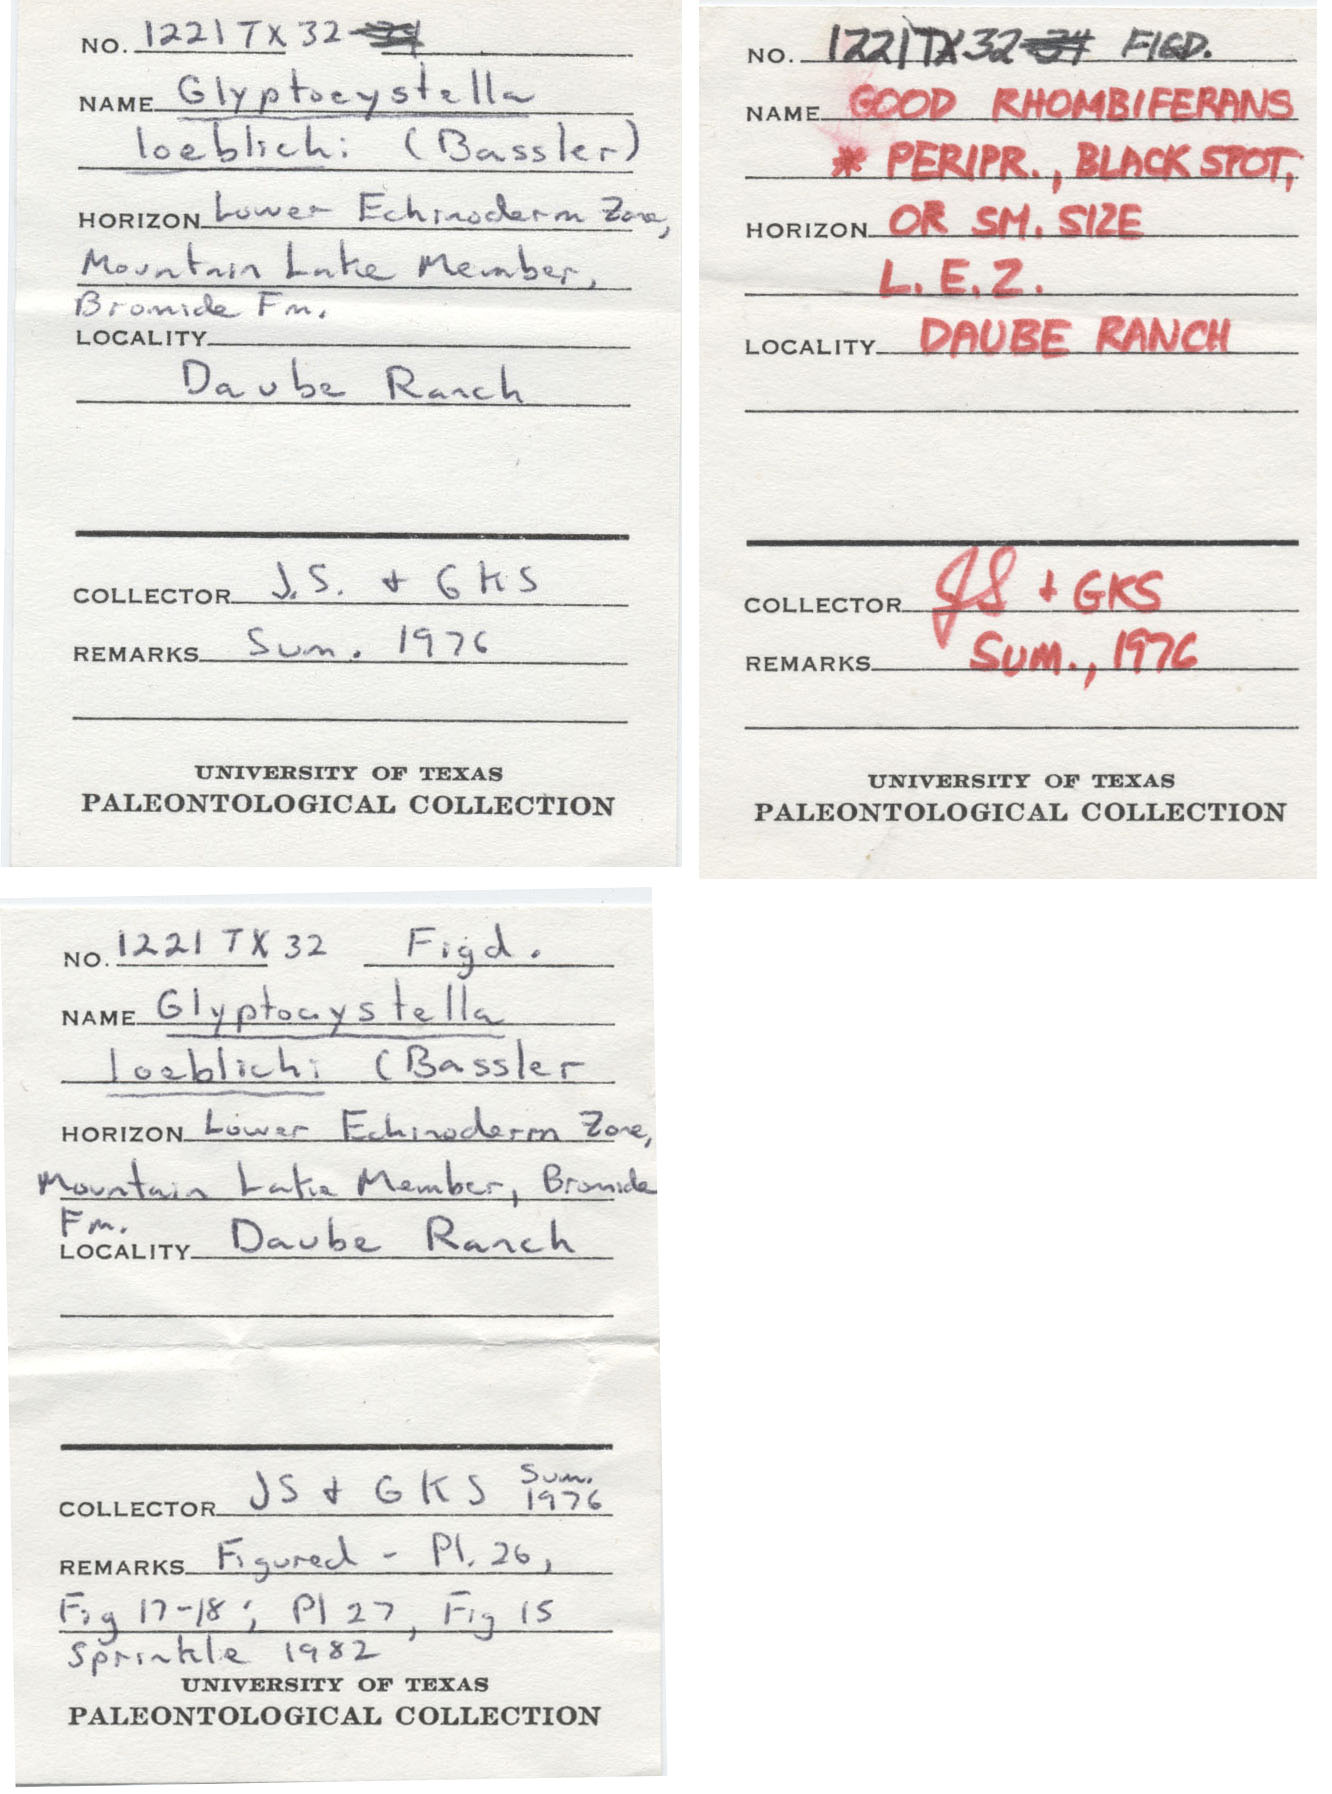 NO. 1221 TX 32
NAME Glyptocystella
loeblichi (Bassler)
HORIZON Lower Echinoderm Zone,
Mountain Lake Member,
Bromide Fm.
LOCALITY
Daube Ranch
COLLECTOR J.S. + GKS
REMARKS Sum. 1976
UNIVERSITY OF TEXAS
PALEONTOLOGICAL COLLECTION
NO. 1221TX32 FIGD.
NAME GOOD RHOMBIFERANS
* PERIPR., BLACK SPOT,
HORIZON OR SM. SIZE
L. E. Z.
LOCALITY DAUBE RANCH
COLLECTOR JS + GKS
REMARKS SUM., 1976
UNIVERSITY OF TEXAS
PALEONTOLOGICAL COLLECTION
NO. 1221 TX 32 Figd.
NAME Glyptocystella
loeblichi (Bassler
HORIZON Lower Echinoderm Zone,
Mountain Lake Member, Bromide
Fm.
LOCALITY Daube Ranch
COLLECTOR JS + GKS Sum. 1976
REMARKS Figured - Pl. 26,
Fig 17-18; Pl 27, Fig 15
Sprinkle 1982
UNIVERSITY OF TEXAS
PALEONTOLOGICAL COLLECTION